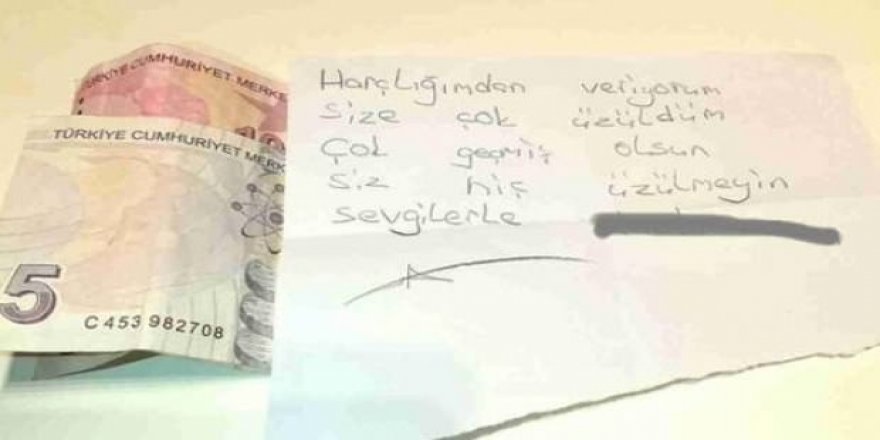 TÜRKİYE CUMHURİYET MERKE
TÜRKİYE CUMHURİYET MERK
5
C453 982708
Harçlığımdan veriyorum
Size çok üzüldüm
Çok geçmiş olsun
Siz hiç üzülmeyin
Sevgilerle